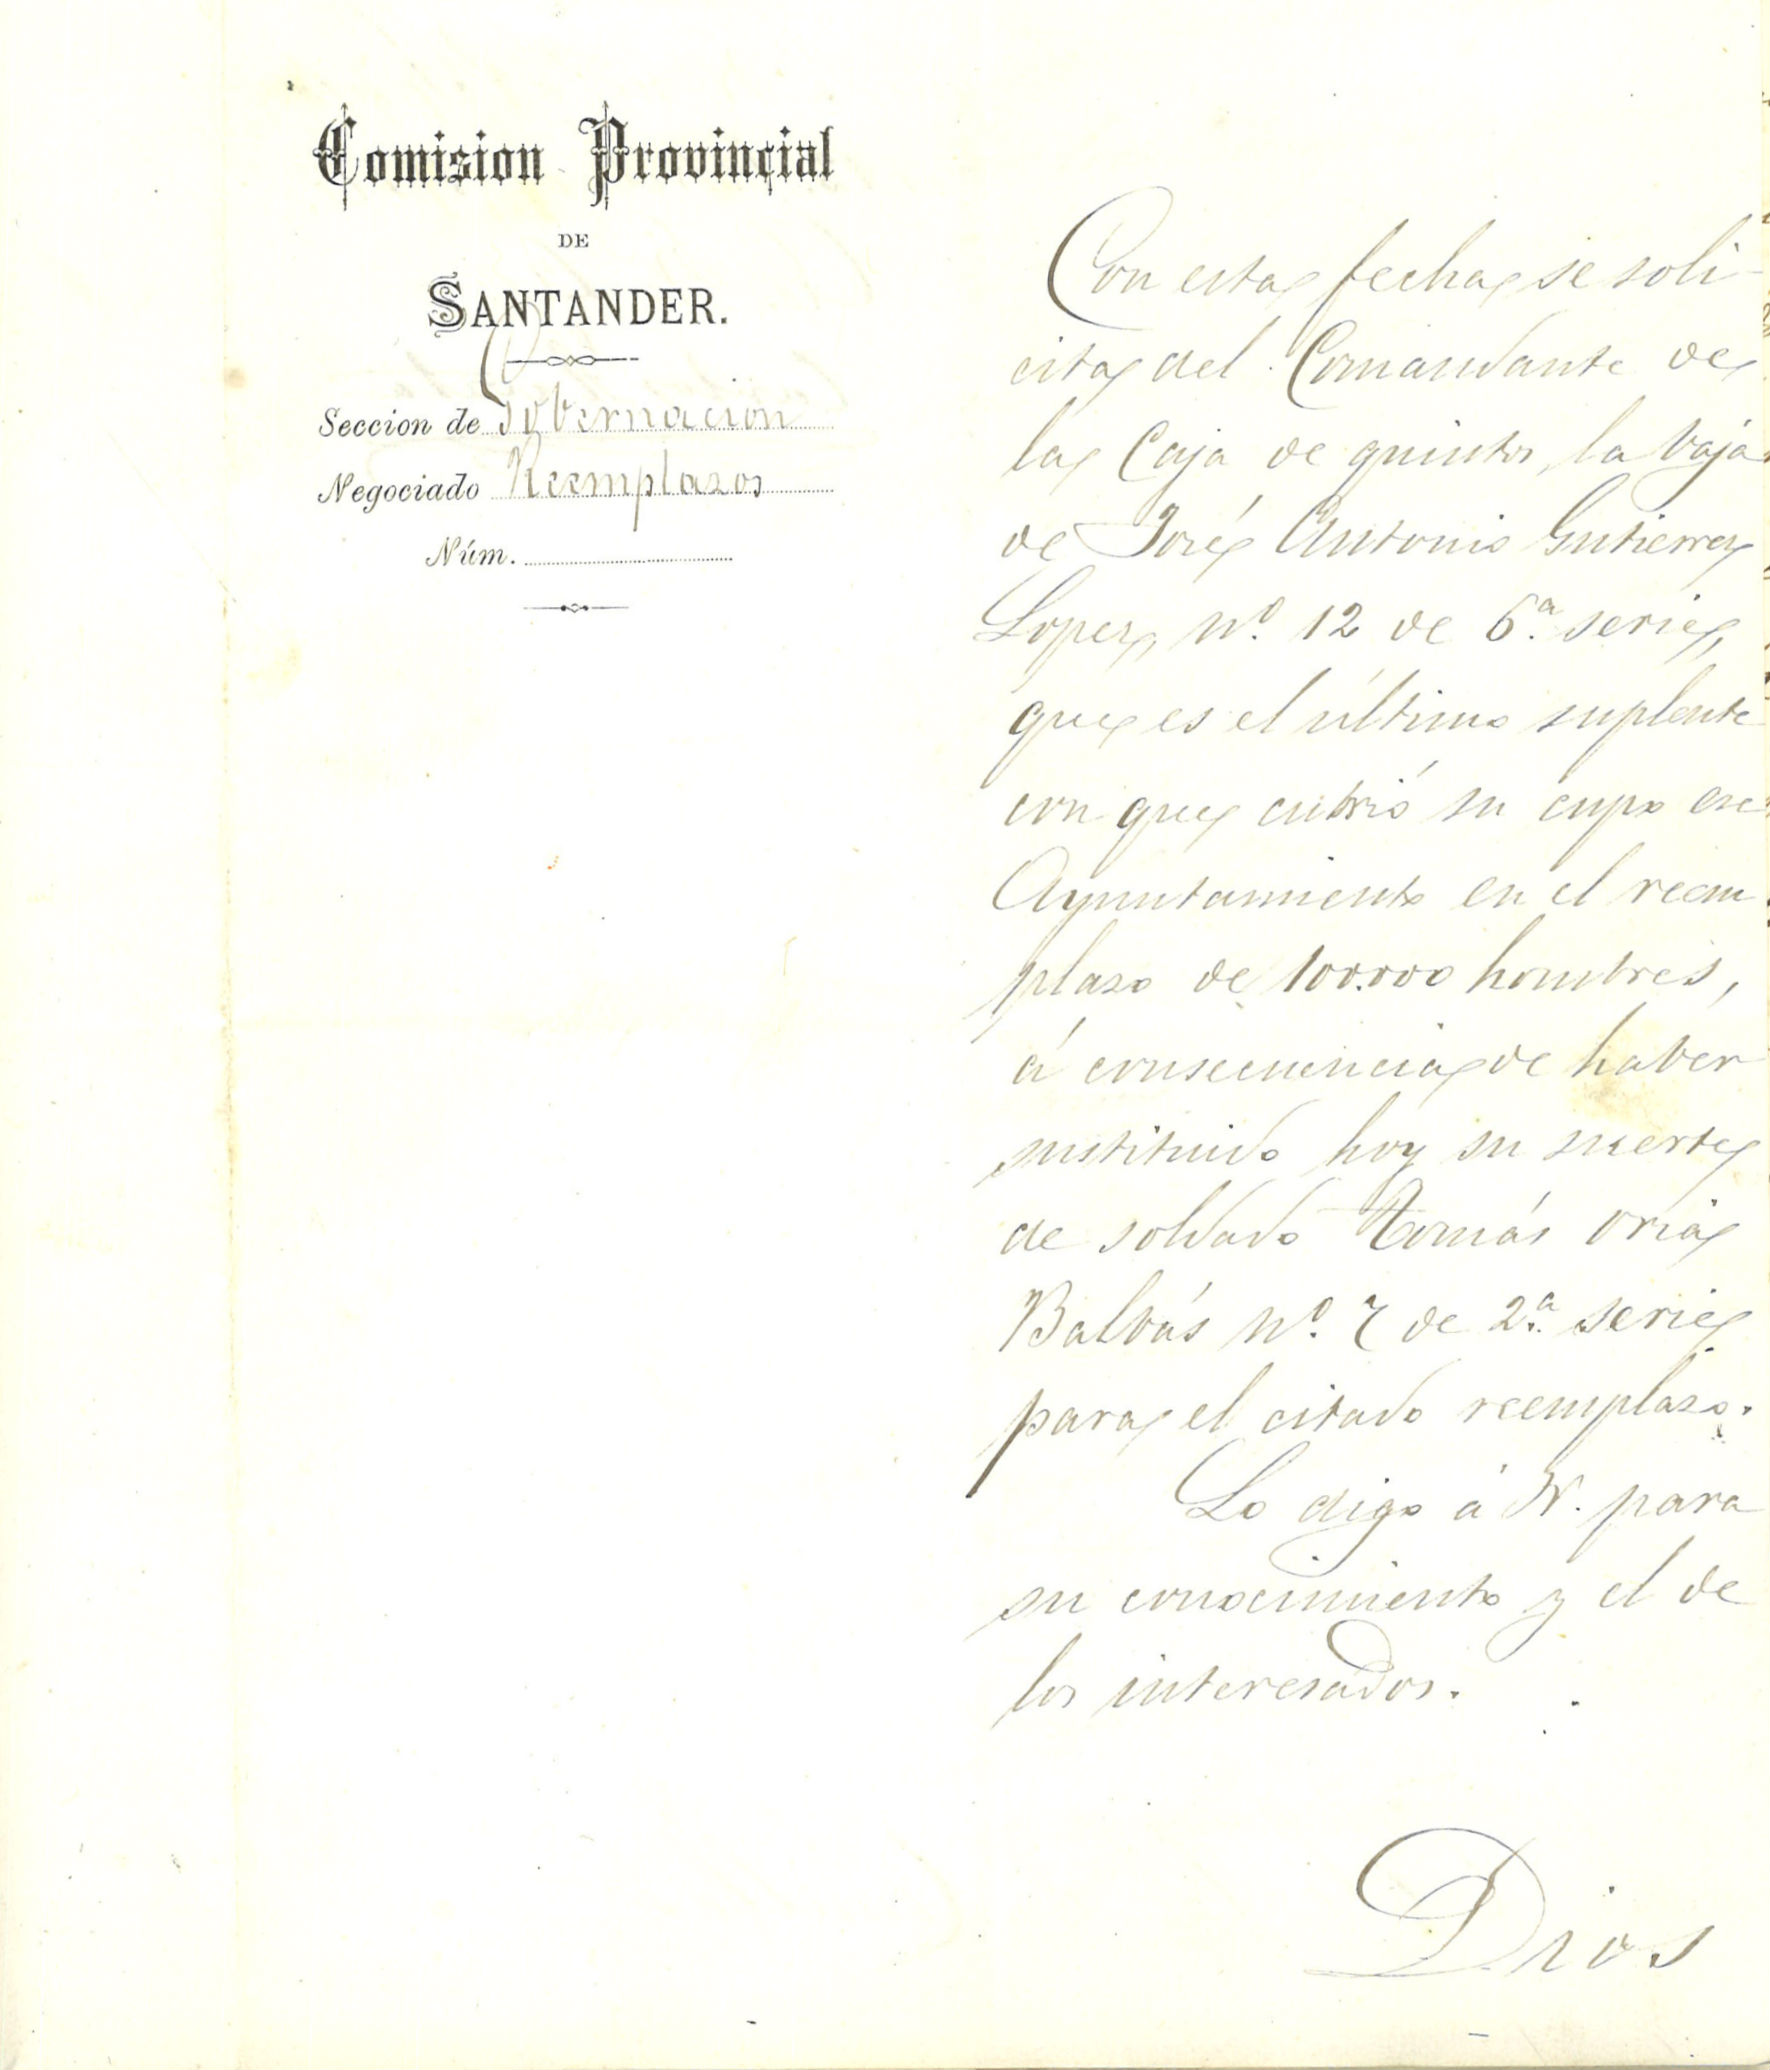 Comision Provincial
DE
SANTANDER.
Seccion de Gobernacion
Negociado Reemplazos
Núm.
Con esta fecha se soli-
cita del Comandante de
la Caja de quintos, la baja
de José Antonio Gutierrez
Lopez, nº. 12 de 6ª. serie,
que es el último suplente
con que cubrió su cupo ese
Ayuntamiento en el reem
plazo de 100.000 hombres,
á consecuencia de haber
sustituido hoy su suerte
de soldado Tomás Oria
Balbás nº. 7 de 2ª. serie
para el citado reemplazo.
Lo digo á V. para
su conocimiento y el de
los interesados.
Dios